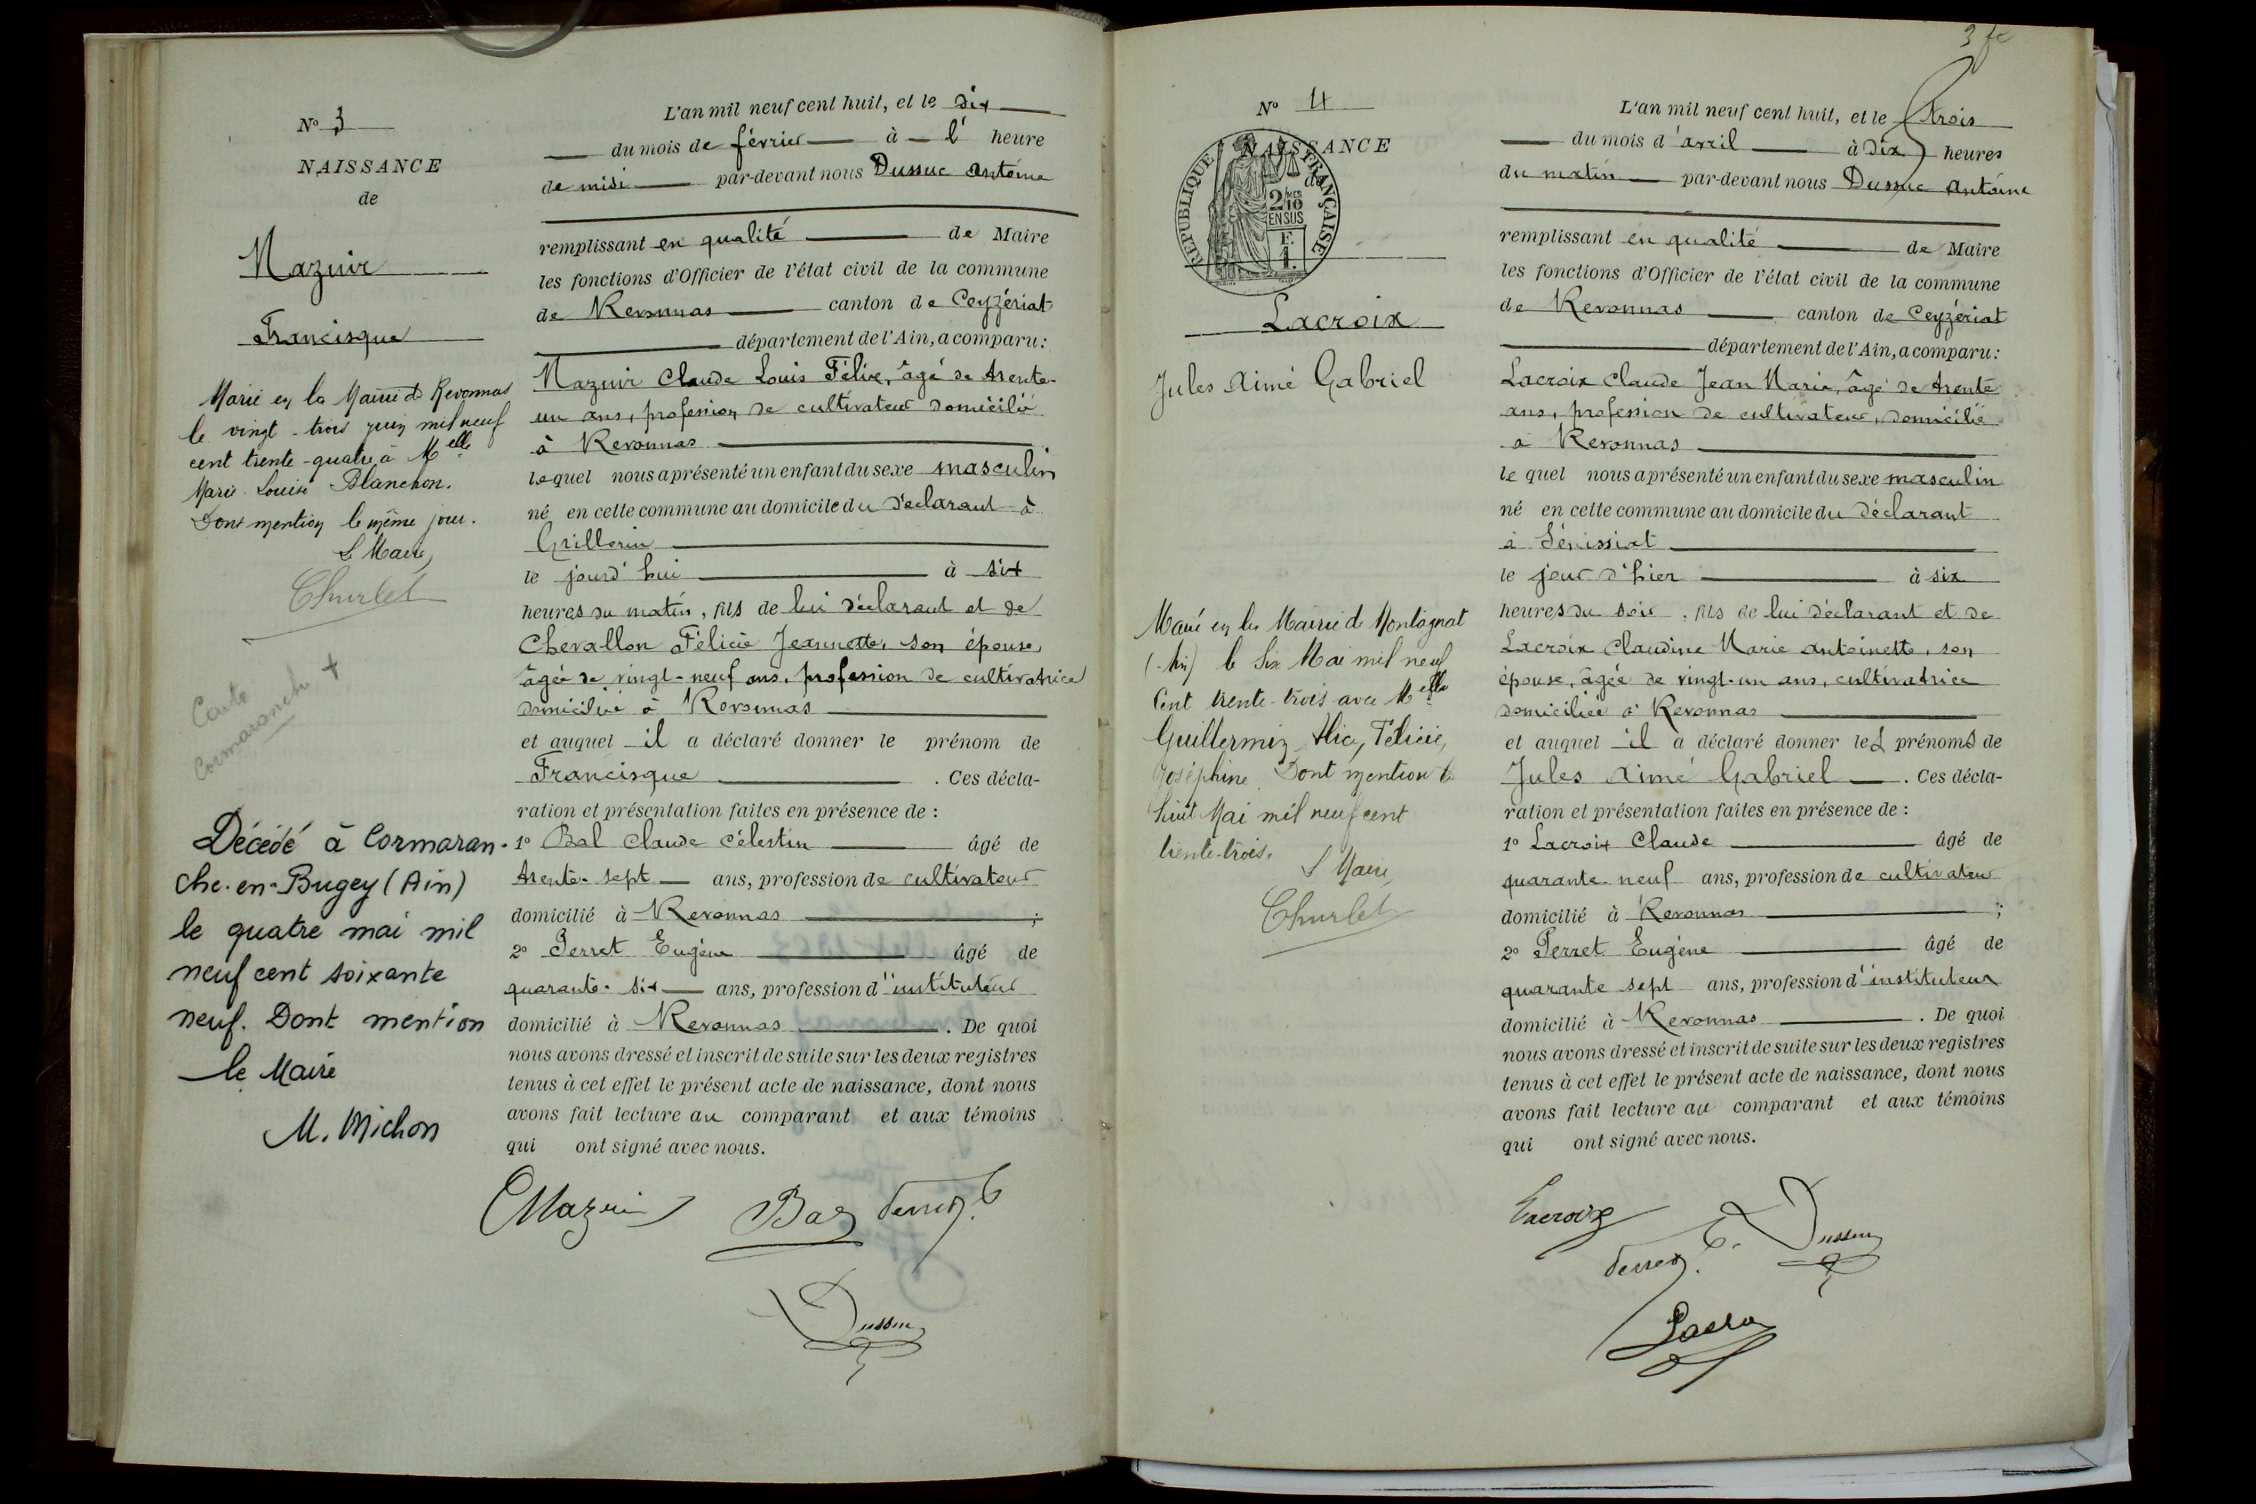 N° 3
NAISSANCE
de
Mazuir
Francisque
Marié en la Mairie de Revonnas
le vingt-trois juin mil neuf
cent trente-quatre à Melle
Marie Louise Blanchon.
Dont mention le même jour.
Le Maire,
Churlet
Carte
Cormaranche +
Décédé à Cormaran-
che-en-Bugey (Ain)
le quatre mai mil
neuf cent soixante
neuf. Dont mention
le Maire
M. Michon
L'an mil neuf cent huit, et le dix
du mois de février à l' heure
de midi par-devant nous Dussuc Antoine
remplissant en qualité de Maire
les fonctions d'Officier de l'état civil de la commune
de Revonnas canton de Ceyzériat
département de l'Ain, a comparu:
Mazuir Claude Louis Félix, âgé de trente-
un ans, profession de cultivateur domicilié
à Revonnas
lequel nous a présenté un enfant du sexe masculin
né en cette commune au domicile du déclarant à
Grillerin
le jourd'hui à six
heures du matin, fils de lui déclarant et de
Chevallon Félicie Jeannette, son épouse,
âgée de vingt-neuf ans, profession de cultivatrice
domiciliée à Revonnas
et auquel il a déclaré donner le prénom de
Francisque . Ces décla-
ration et présentation faites en présence de :
1° Bal Claude Célestin âgé de
trente-sept ans, profession de cultivateur
domicilié à Revonnas ;
2° Perret Eugène âgé de
quarante-six ans, profession d'instituteur
domicilié à Revonnas . De quoi
nous avons dressé et inscrit de suite sur les deux registres
tenus à cet effet le présent acte de naissance, dont nous
avons fait lecture au comparant et aux témoins
qui ont signé avec nous.
Mazuir Bal Perret E.
Dussuc
3 fc
N° 4
NAISSANCE
de
RÉPUBLIQUE FRANÇAISE
2/10
EN SUS
F.
1.
Lacroix
Jules Aimé Gabriel
Marié en la Mairie de Montagnat
(Ain) le Six Mai mil neuf
Cent trente-trois avec Melle
Guillermin Alice, Félicie,
Joséphine. Dont mention le
huit Mai mil neuf cent
trente-trois.
Le Maire,
Churlet
L'an mil neuf cent huit, et le trois
du mois d'avril à dix heures
du matin par-devant nous Dussuc Antoine
remplissant en qualité de Maire
les fonctions d'Officier de l'état civil de la commune
de Revonnas canton de Ceyzériat
département de l'Ain, a comparu:
Lacroix Claude Jean Marie, âgé de trente
ans, profession de cultivateur, domicilié
à Revonnas
le quel nous a présenté un enfant du sexe masculin
né en cette commune au domicile du déclarant
à Sénissiat
le jour d'hier à six
heures du soir, fils de lui déclarant et de
Lacroix Claudine Marie Antoinette, son
épouse, âgée de vingt-un ans, cultivatrice
domiciliée à Revonnas
et auquel il a déclaré donner les prénoms de
Jules Aimé Gabriel . Ces décla-
ration et présentation faites en présence de :
1° Lacroix Claude âgé de
quarante-neuf ans, profession de cultivateur
domicilié à Revonnas ;
2° Perret Eugène âgé de
quarante sept ans, profession d'instituteur
domicilié à Revonnas . De quoi
nous avons dressé et inscrit de suite sur les deux registres
tenus à cet effet le présent acte de naissance, dont nous
avons fait lecture au comparant et aux témoins
qui ont signé avec nous.
Lacroix
Perret E. Dussuc
Lacroix